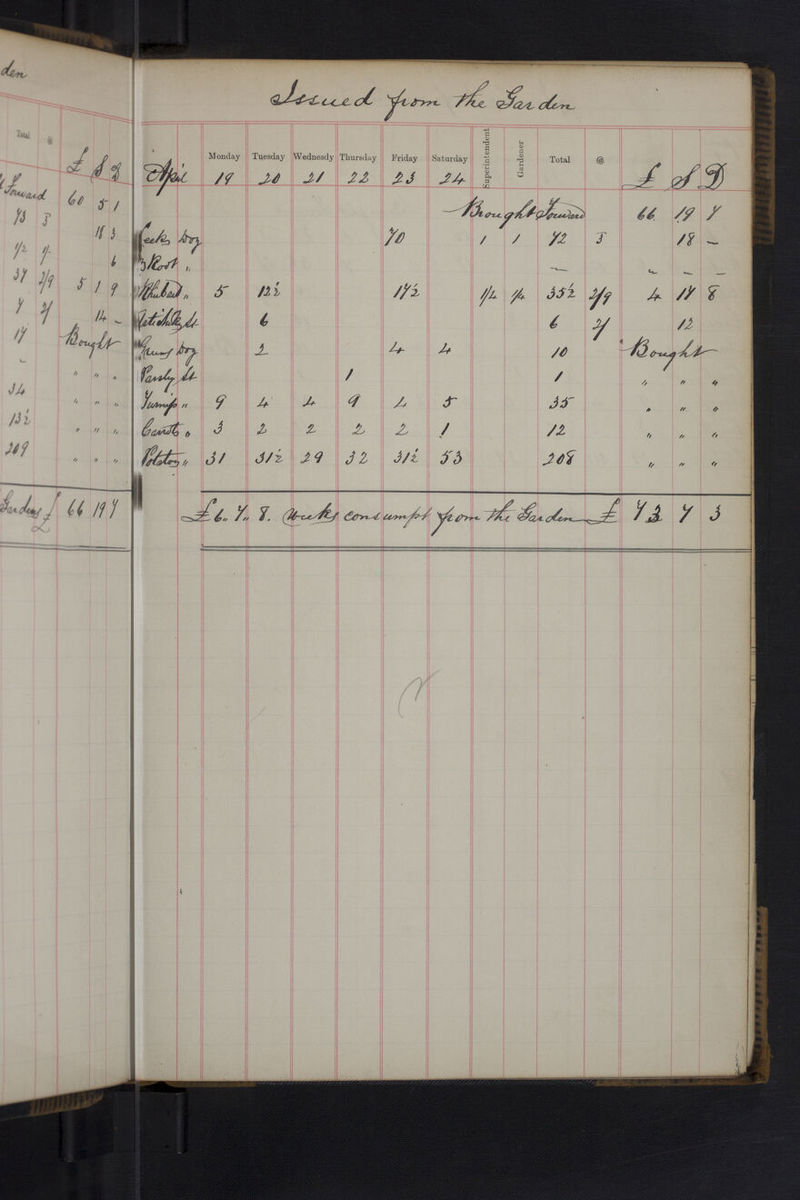 den
Total @ £ S D
Forward 60 5 1
73 3 18 3
1/2 6
37 2/9 5 1 9
7 2/ 14 –
17 Bought
– " " "
34 " " "
13½ " " "
209 " " "
Gardens £ 66 19 7
Issued from the Garden
April Monday 19 Tuesday 20 Wednesdy 21 Thursday 22 Friday 23 Saturday 24 Superintendent Gardener Total @ £ S D
Brought Forward 66 19 7
Leeks Doz 70 1 1 72 3 18 –
Root " – – – –
Rhubarb " 5 12½ 17½ 1/4 1/4 35½ 2/9 4 17 8
St 6 6 2/ 12
Doz 2 4 4 10 Bought
Parsley St 1 1 " " "
Turnips " 9 4 4 9 4 5 35 " " "
Carrots " 3 2 2 2 2 1 12 " " "
Potatoes " 31 31½ 29 32 31½ 53 208 " " "
£6. 7. 8. weeks consumpt from the Garden £ 73 7 3